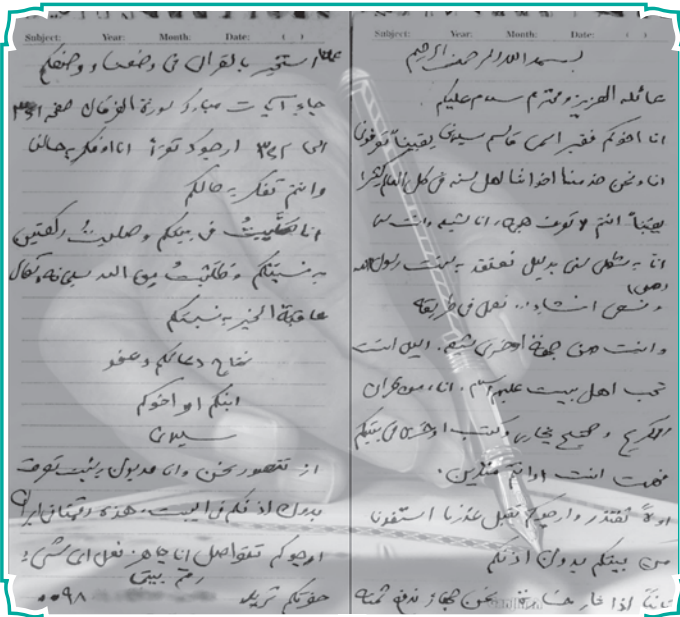 Subject: Year: Month: Date: ( )
بسم الله الرحمن الرحیم
عائله العزیز و محترم سلام علیکم
انا اخوکم فقیر اسمی قاسم سلیمانی یقیناً تعرفونا
انا و نحن خدمنا اخواننا اهل سنه فی کل العالم کثیرا
یقیناً انتم شیعه و انت سنی
انا به شکل سنی بدلیل نعتقد به سنت رسول الله (ص)
و نسعی انشاء الله نعمل فی طریقه
و انت من جهة اخری شیعه. انت
تحب اهل بیت علیهم السلام. انا من قران
الکریم و صحیح بخاری و کتب اخری فی بیتکم
فهمت انت و انتم متدینین.
اولاً نعتذر و ارجوکم تقبل عذرنا استفدنا
من بیتکم بدون اذنکم
ثانیاً اذا صار خسارة نحن جاهز ندفع ثمنه
Subject: Year: Month: Date: ( )
استخیر بالقران فی وضعنا و وضعکم
جاء آیات مبارکه سورة الفرقان صفحه ۳۶۱
الی ۳۶۲ ارجوکم تقرأ انا افکر به حالنا
و انتم تفکر به حالکم
انا صلّیتُ فی بیتکم و صلیتُ رکعتین
به نسبتکم و طلبتُ من الله سبحانه و تعال
عاقبة الخیر به نسبتکم
نحتاج دعائکم و عفو
ابنکم او اخوکم
سلیمانی
نحن و انا مدیون
بدون اذنکم فی البیت، هذه رقم ایران
ارجوکم تتواصل انا جاهز نعمل ای شیء
حضرتکم ترید رقم بیتی ۰۰۹۸